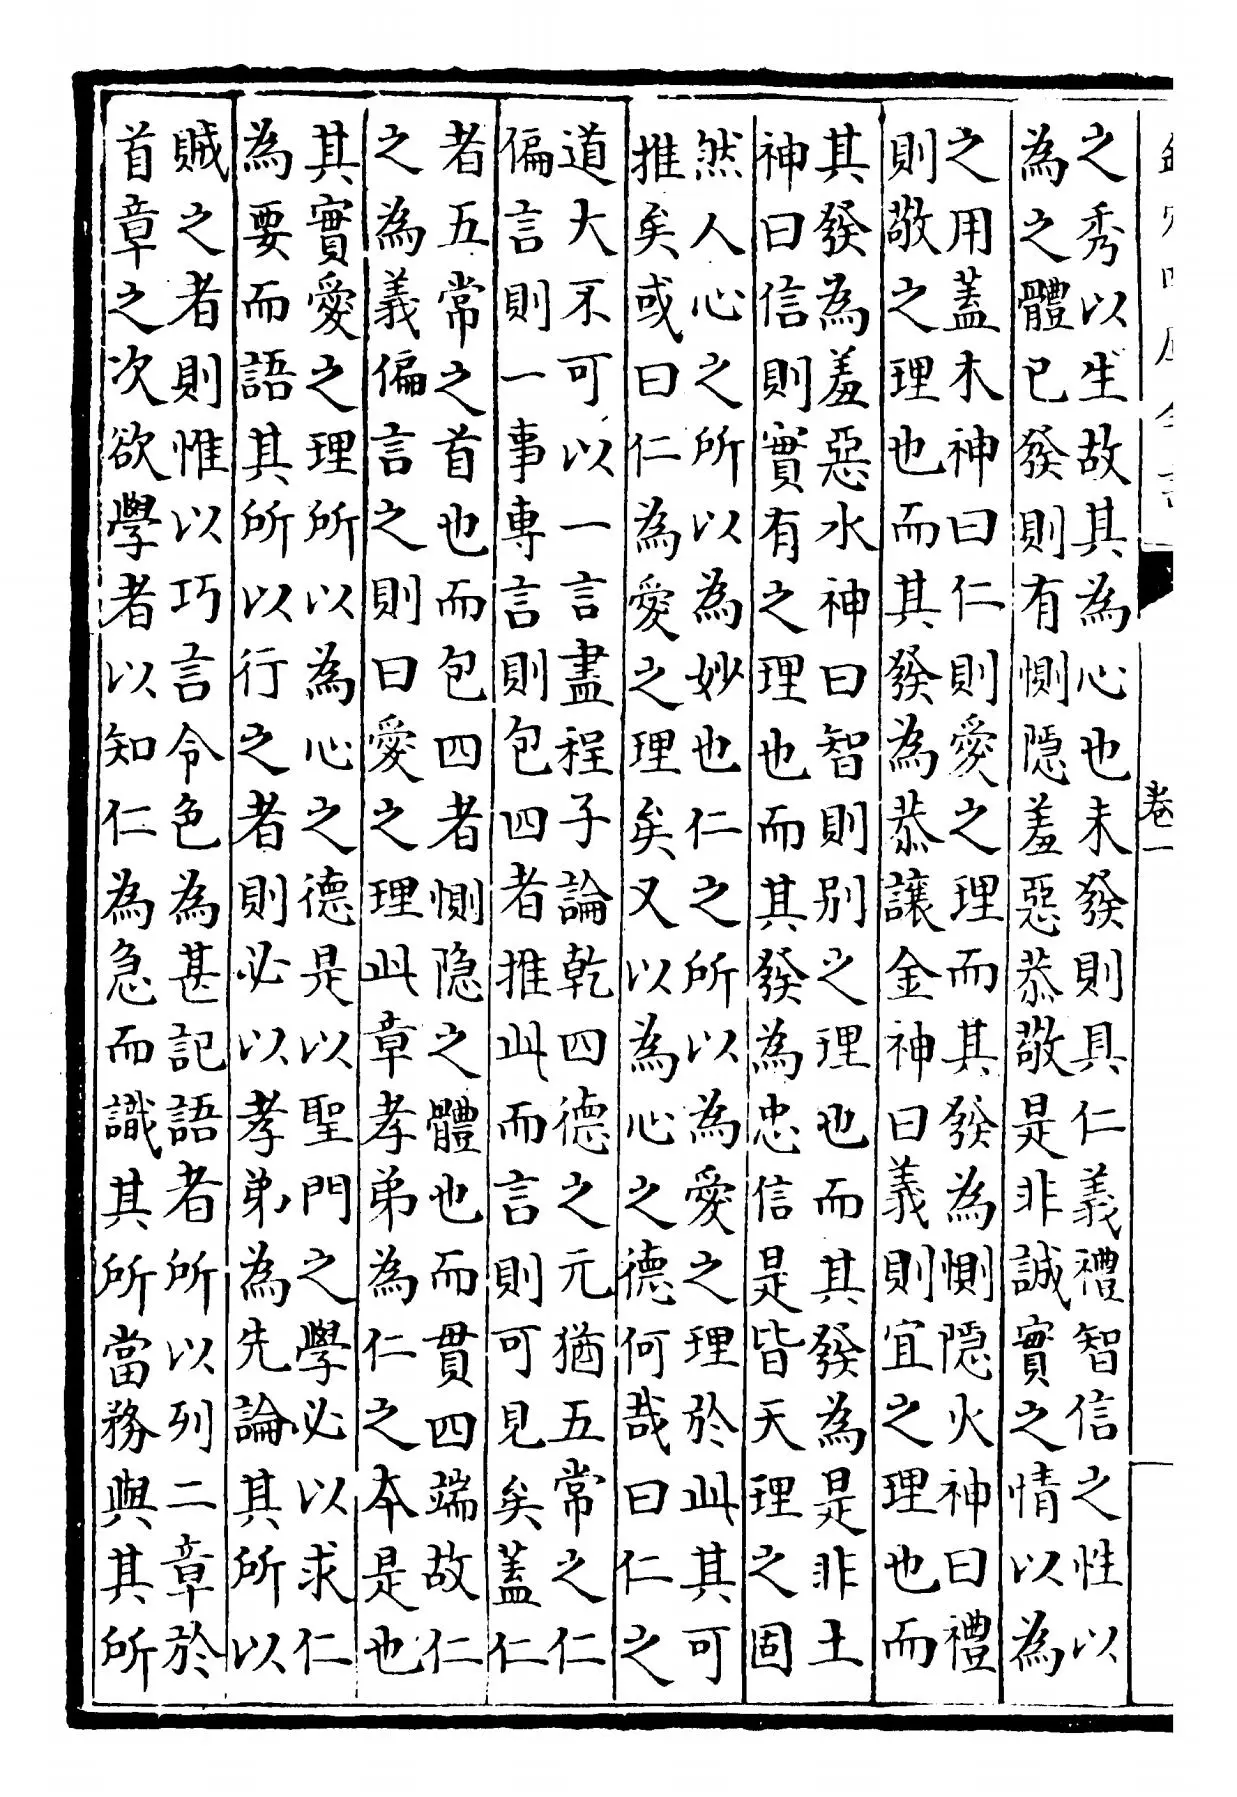 之秀以生故其為心也未發則具仁義禮智信之性以
為之體已發則有惻隱羞惡恭敬是非誠實之情以為
之用蓋木神曰仁則愛之理而其發為惻隱火神曰禮
則敬之理也而其發為恭讓金神曰義則宜之理也而
其發為羞惡水神曰智則别之理也而其發為是非土
神曰信則實有之理也而其發為忠信是皆天理之固
然人心之所以為妙也仁之所以為愛之理於此其可
推矣或曰仁為愛之理矣又以為心之德何哉曰仁之
道大不可以一言盡程子論乾四德之元猶五常之仁
偏言則一事專言則包四者推此而言則可見矣蓋仁
者五常之首也而包四者惻隐之體也而貫四端故仁
之為義偏言之則曰愛之理此章孝弟為仁之本是也
其實愛之理所以為心之德是以聖門之學必以求仁
為要而語其所以行之者則必以孝弟為先論其所以
賊之者則惟以巧言令色為甚記語者所以列二章於
首章之次欲學者以知仁為急而識其所當務與其所
卷一